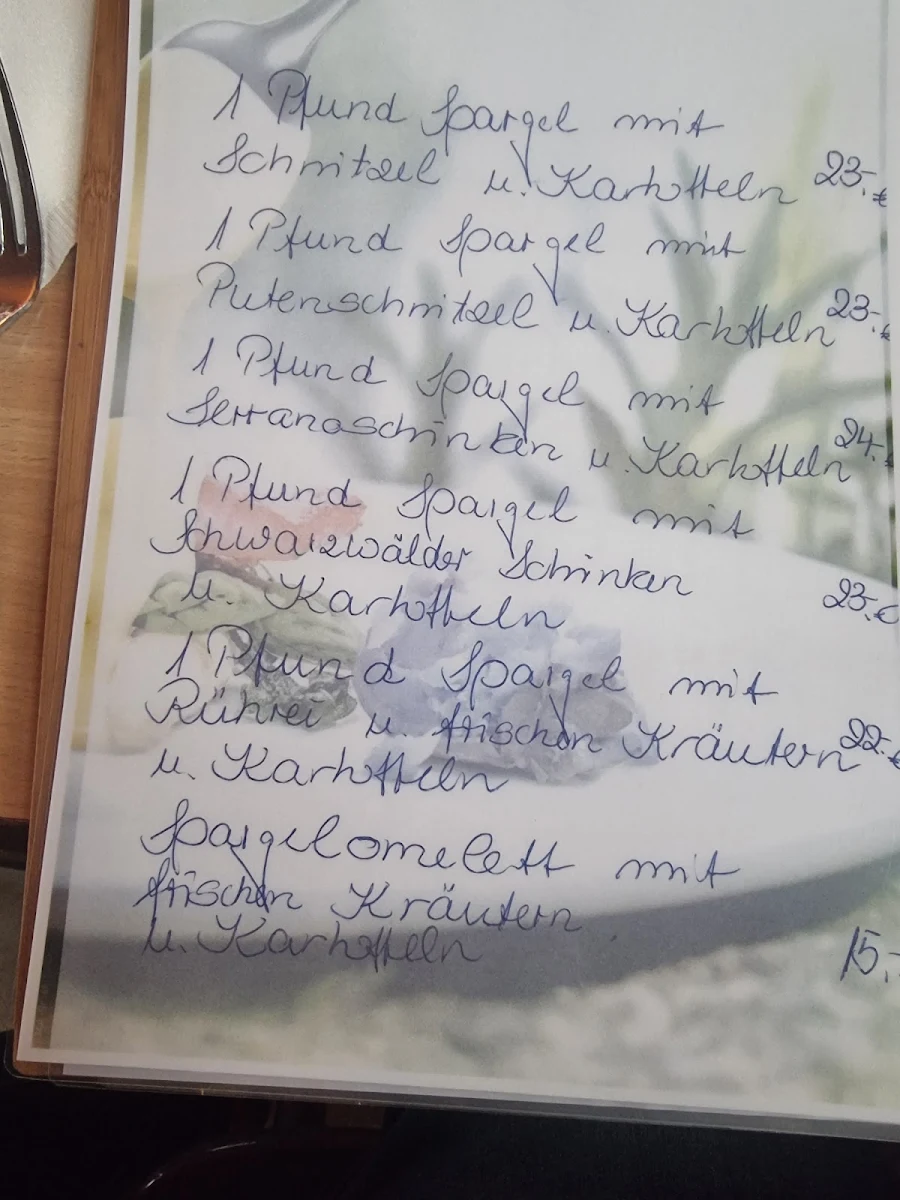 1 Pfund Spargel mit
Schnitzel u. Kartoffeln 23,- €
1 Pfund Spargel mit
Putenschnitzel u. Kartoffeln 23,- €
1 Pfund Spargel mit
Serranoschinken u. Kartoffeln 24,- €
1 Pfund Spargel mit
Schwarzwälder Schinken
u. Kartoffeln 23,- €
1 Pfund Spargel mit
Rührei u. frischen Kräutern 22,- €
u. Kartoffeln
Spargelomelett mit
frischen Kräutern
u. Kartoffeln 15,-